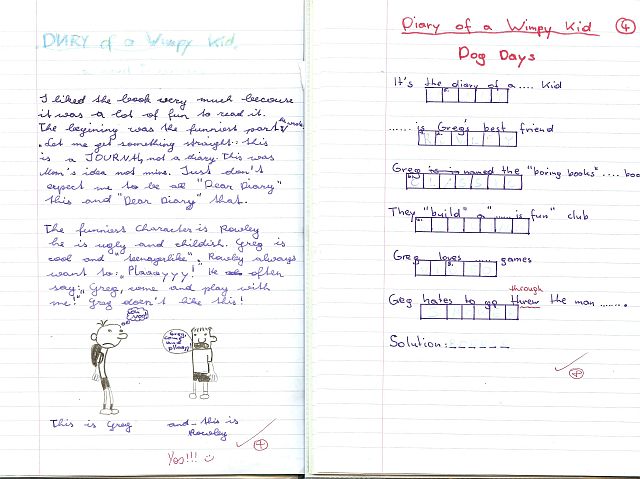 DIARY of a Wimpy Kid
I liked the book very much becouse
it was a lot of fun to read it.
The begining was the funniest part
"Let me get something straight: this
is a JOURNAL, not a diary. This was
Mom's idea not mine. Just don't
expect me to be all "Dear Diary"
this and "Dear Diary" that.
The funniest Character is Rowley
he is ugly and childish. Greg is
cool and "teenagerlike". Rowley always
want to: "Plaaayyy! He often
say: "Greg, come and play with
me!" Greg doesn't like this!
Greg, come and play!
This is Greg
and this is
Rowley
Yes!!!
Diary of a Wimpy Kid 4
Dog Days
It's the diary of a .... Kid
...... is Greg's best friend
Greg is in named the "boring books" .... boo
They "build" a "...... is fun" club
Greg loves ...... games
through
Geg hates to go threw the man .......
Solution: _ _ _ _ _ _